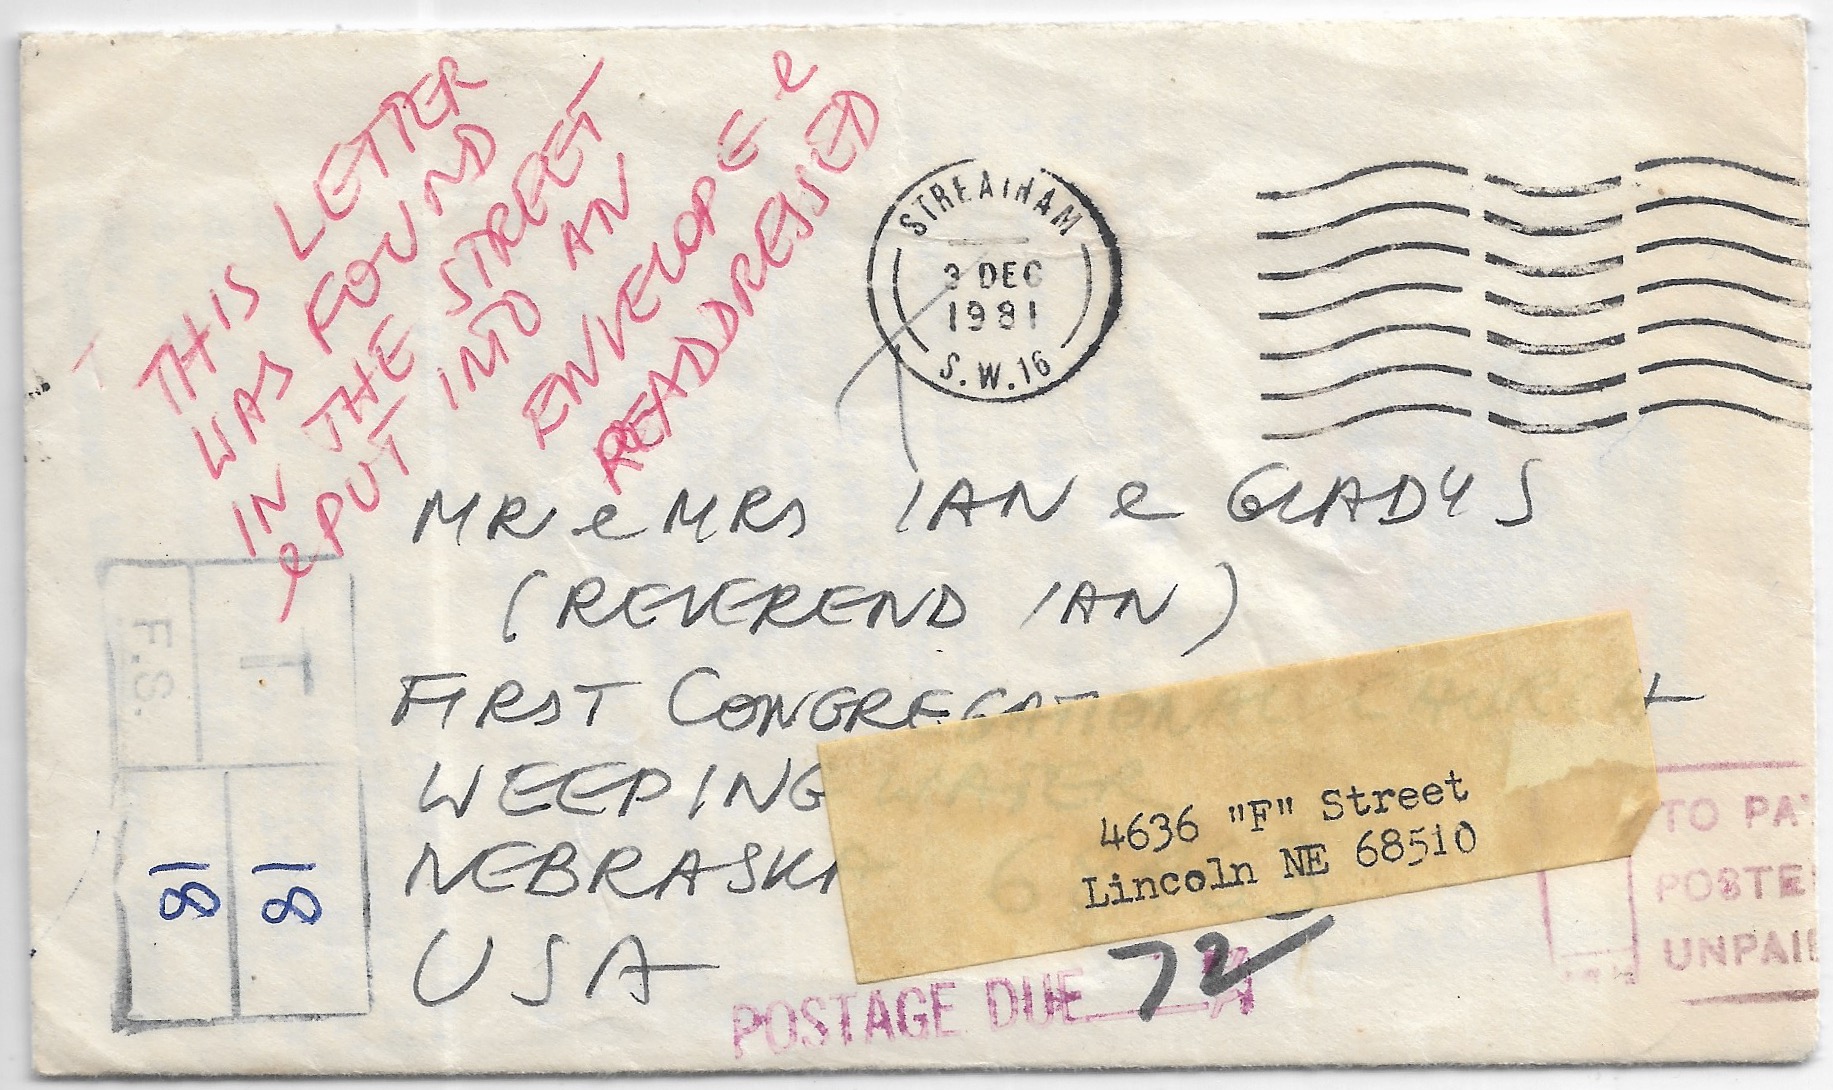 THIS LETTER
WAS FOUND
IN THE STREET
& PUT INTO AN
ENVELOPE &
READDRESSED
STREATHAM
3 DEC
1981
S.W.16
MR & MRS IAN & GLADYS
(REVEREND IAN)
FIRST CONGREGATIONAL
WEEPING WATER
NEBRASKA
USA
4636 "F" Street
Lincoln NE 68510
T
F.S.
81
81
TO PAY
POSTED
UNPAID
POSTAGE DUE 72